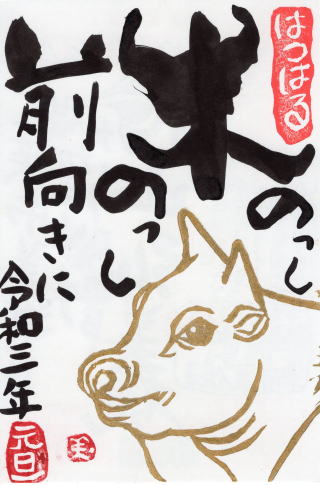 はつはる
牛のっし
のっし
前向きに
令和三年
元旦